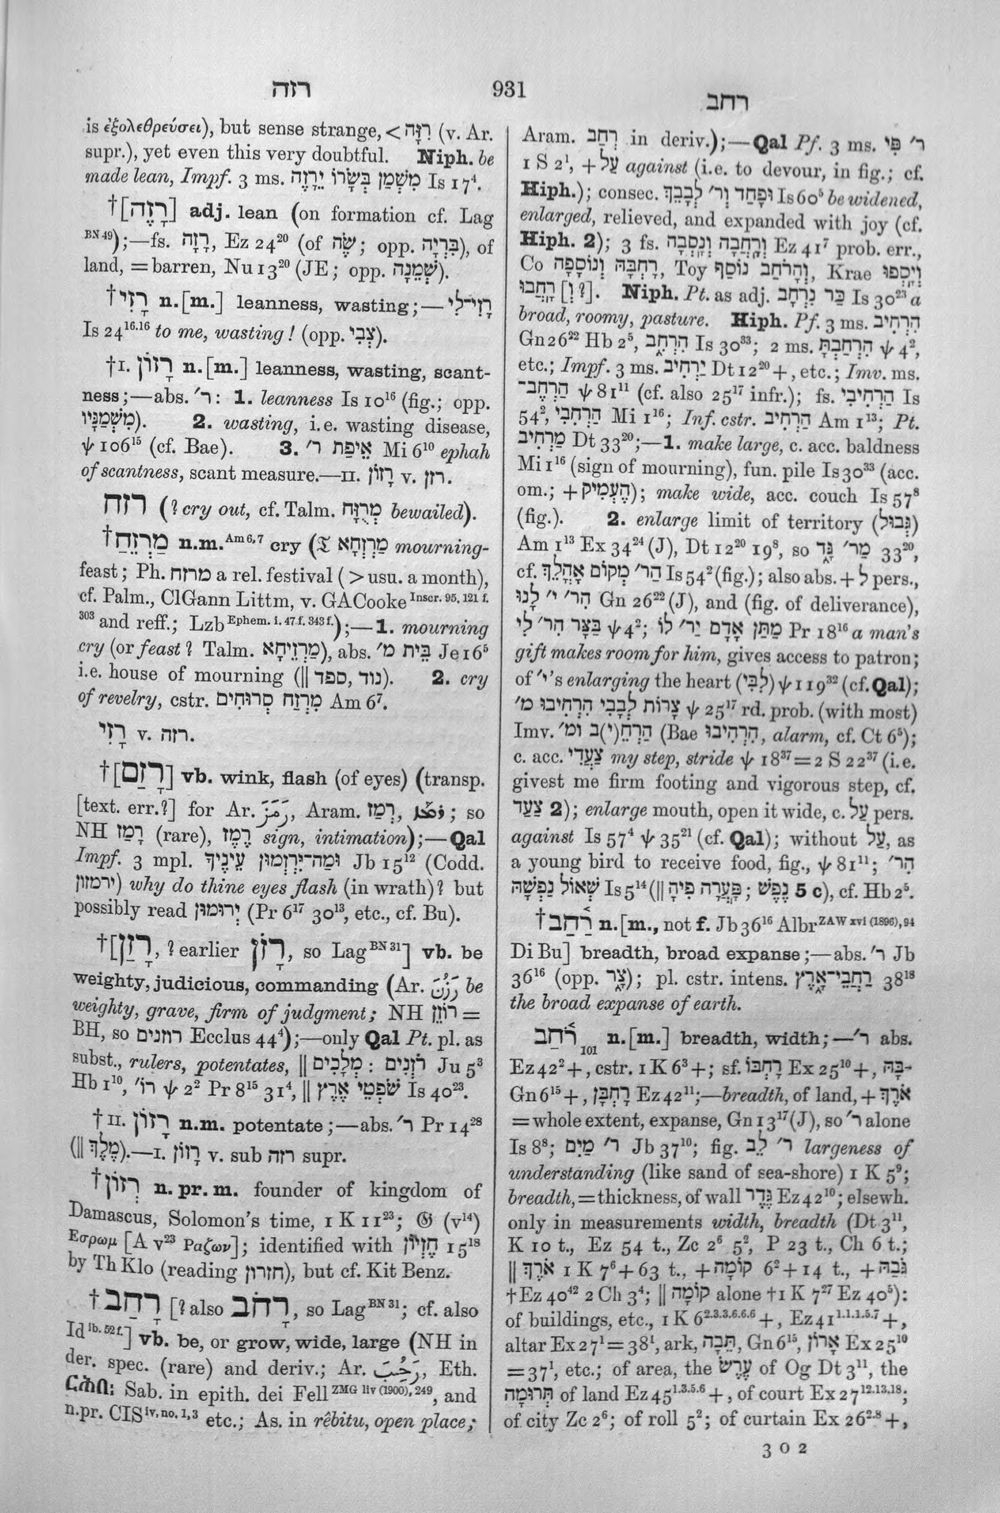 רזה
931
רחב
is ἐξολεθρεύσει), but sense strange, < רָזָה (v. Ar.
supr.), yet even this very doubtful. Niph. be
made lean, Impf. 3 ms. מִשְׁמַן בְּשָׂרוֹ יֵרָזֶה Is 17⁴.
†[רָזֶה] adj. lean (on formation cf. Lag
BN 49);—fs. רָזָה, Ez 24²⁰ (of שֶׂה; opp. בִּרְיָה), of
land, = barren, Nu 13²⁰ (JE; opp. שְׁמֵנָה).
†רָזִי n.[m.] leanness, wasting;—רָזִי־לִי
Is 24¹⁶·¹⁶ to me, wasting! (opp. צְבִי).
†I. רָזוֹן n.[m.] leanness, wasting, scant-
ness;—abs. ר׳: 1. leanness Is 10¹⁶ (fig.; opp.
מִשְׁמַנָּיו). 2. wasting, i.e. wasting disease,
ψ 106¹⁵ (cf. Bae). 3. אֵיפַת ר׳ Mi 6¹⁰ ephah
of scantness, scant measure.—II. רָזוֹן v. רזן.
רזח (? cry out, cf. Talm. מְרָזַח bewailed).
†מַרְזֵחַ n.m. Am 6,7 cry (𝔗 מַרְזְחָא mourning-
feast; Ph. מרזח a rel. festival (> usu. a month),
cf. Palm., ClGann Littm, v. GACooke Inscr. 95, 121 f.
303 and reff.; Lzb Ephem. i. 47 f. 343 f.);—1. mourning
cry (or feast? Talm. מַרְזֵיחָא), abs. בֵּית מ׳ Je 16⁵
i.e. house of mourning (|| נוד, ספד). 2. cry
of revelry, cstr. מִרְזַח סְרוּחִים Am 6⁷.
רָזִי v. רזה.
†[רָזַם] vb. wink, flash (of eyes) (transp.
[text. err.?] for Ar. رَمَزَ, Aram. רְמַז, ܪܡܙ; so
NH רָמַז (rare), רֶמֶז sign, intimation);—Qal
Impf. 3 mpl. וּמַה־יִּרְזְמוּן עֵינֶיךָ Jb 15¹² (Codd.
ירמזון) why do thine eyes flash (in wrath)? but
possibly read יְרוּמוּן (Pr 6¹⁷ 30¹³, etc., cf. Bu).
†[רָזַן, ? earlier רָזֹן, so Lag BN 31] vb. be
weighty, judicious, commanding (Ar. رَزُنَ be
weighty, grave, firm of judgment; NH רוֹזֵן =
BH, so רוזנים Ecclus 44⁴);—only Qal Pt. pl. as
subst., rulers, potentates, || מְלָכִים : רֹזְנִים Ju 5³
Hb 1¹⁰, רוֹ׳ ψ 2² Pr 8¹⁵ 31⁴, || שֹׁפְטֵי אֶרֶץ Is 40²³.
†II. רָזוֹן n.m. potentate;—abs. ר׳ Pr 14²⁸
(|| מֶלֶךְ).—I. רָזוֹן v. sub רזה supr.
†רְזוֹן n. pr. m. founder of kingdom of
Damascus, Solomon's time, 1 K 11²³; 𝔊 (v¹⁴)
Εσρωμ [A v²³ Ραζων]; identified with חֶזְיוֹן 15¹⁸
by Th Klo (reading חזרון), but cf. Kit Benz.
†רָחַב [? also רָחֹב, so Lag BN 31; cf. also
Id ib. 52 f.] vb. be, or grow, wide, large (NH in
der. spec. (rare) and deriv.; Ar. رَحُبَ, Eth.
ርሕበ: Sab. in epith. dei Fell ZMG liv (1900), 249, and
n.pr. CIS iv, no. 1, 3 etc.; As. in rêbitu, open place;
Aram. רחב in deriv.);—Qal Pf. 3 ms. ר׳ פִּי
1 S 2¹, + עַל against (i.e. to devour, in fig.; cf.
Hiph.); consec. וּפָחַד וְר׳ לְבָבֵךְ Is 60⁵ be widened,
enlarged, relieved, and expanded with joy (cf.
Hiph. 2); 3 fs. וְרָחֲבָה וְנָסְבָה Ez 41⁷ prob. err.,
Co רָחְבָּהּ וְנוֹסָפָה, Toy וְהָרֹחַב נוֹסָף, Krae וְיִסְפוּ
[? וְ] רָחֲבוּ. Niph. Pt. as adj. כַּר נִרְחָב Is 30²³ a
broad, roomy, pasture. Hiph. Pf. 3 ms. הִרְחִיב
Gn 26²² Hb 2⁵, הִרְחִב Is 30³³; 2 ms. הִרְחַבְתָּ ψ 4²,
etc.; Impf. 3 ms. יַרְחִיב Dt 12²⁰ +, etc.; Imv. ms.
הַרְחֶב־ ψ 81¹¹ (cf. also 25¹⁷ infr.); fs. הַרְחִיבִי Is
54², הַרְחִבִי Mi 1¹⁶; Inf. cstr. הַרְחִיב Am 1¹³; Pt.
מַרְחִיב Dt 33²⁰;—1. make large, c. acc. baldness
Mi 1¹⁶ (sign of mourning), fun. pile Is 30³³ (acc.
om.; + הֶעְמִיק); make wide, acc. couch Is 57⁸
(fig.). 2. enlarge limit of territory (גְּבוּל)
Am 1¹³ Ex 34²⁴ (J), Dt 12²⁰ 19⁸, so מַר׳ גָּד 33²⁰,
cf. הַר׳ מְקוֹם אָהֳלֵךְ Is 54² (fig.); also abs. + לְ pers.,
הִר׳ י׳ לָנוּ Gn 26²² (J), and (fig. of deliverance),
בַּצָּר הִר׳ לִי ψ 4²; מַתָּן אָדָם יַר׳ לוֹ Pr 18¹⁶ a man's
gift makes room for him, gives access to patron;
of י׳'s enlarging the heart (לִבִּי) ψ 119³² (cf. Qal);
צָרוֹת לְבָבִי הִרְחִיבוּ מ׳ ψ 25¹⁷ rd. prob. (with most)
Imv. הַרְחֵ(י)ב וּמ׳ (Bae הִרְהִיבוּ, alarm, cf. Ct 6⁵);
c. acc. צַעֲדִי my step, stride ψ 18³⁷ = 2 S 22³⁷ (i.e.
givest me firm footing and vigorous step, cf.
צַעַד 2); enlarge mouth, open it wide, c. עַל pers.
against Is 57⁴ ψ 35²¹ (cf. Qal); without עַל, as
a young bird to receive food, fig., ψ 81¹¹; הִר׳
שְׁאוֹל נַפְשָׁהּ Is 5¹⁴ (|| פָּעֲרָה פִיהָ; נֶפֶשׁ 5 c), cf. Hb 2⁵.
†רַחַב n.[m., not f. Jb 36¹⁶ Albr ZAW xvi (1896), 94
Di Bu] breadth, broad expanse;—abs. ר׳ Jb
36¹⁶ (opp. צָר); pl. cstr. intens. רַחֲבֵי־אָרֶץ 38¹⁸
the broad expanse of earth.
רֹחַב 101 n.[m.] breadth, width;—ר׳ abs.
Ez 42² +, cstr. 1 K 6³ +; sf. רָחְבּוֹ Ex 25¹⁰ +, בָּהּ-
Gn 6¹⁵ +, רָחְבָּן Ez 42¹¹;—breadth, of land, + אֹרֶךְ
= whole extent, expanse, Gn 13¹⁷ (J), so ר׳ alone
Is 8⁸; ר׳ מַיִם Jb 37¹⁰; fig. ר׳ לֵב largeness of
understanding (like sand of sea-shore) 1 K 5⁹;
breadth, = thickness, of wall גֶּדֶר Ez 42¹⁰; elsewh.
only in measurements width, breadth (Dt 3¹¹,
K 10 t., Ez 54 t., Zc 2⁶ 5², P 23 t., Ch 6 t.;
|| אֹרֶךְ 1 K 7⁶ + 63 t., + קוֹמָה 6² + 14 t., + גֹּבַהּ
†Ez 40⁴² 2 Ch 3⁴; || קוֹמָה alone †1 K 7²⁷ Ez 40⁵):
of buildings, etc., 1 K 6²·³·³·⁶·⁶·⁶ +, Ez 41¹·¹·¹·⁵·⁷ +,
altar Ex 27¹ = 38¹, ark, תֵּבָה, Gn 6¹⁵, אָרוֹן Ex 25¹⁰
= 37¹, etc.; of area, the עֶרֶשׂ of Og Dt 3¹¹, the
תְּרוּמָה of land Ez 45¹·³·⁵·⁶ +, of court Ex 27¹²·¹³·¹⁸;
of city Zc 2⁶; of roll 5²; of curtain Ex 26²·⁸ +,
3 O 2